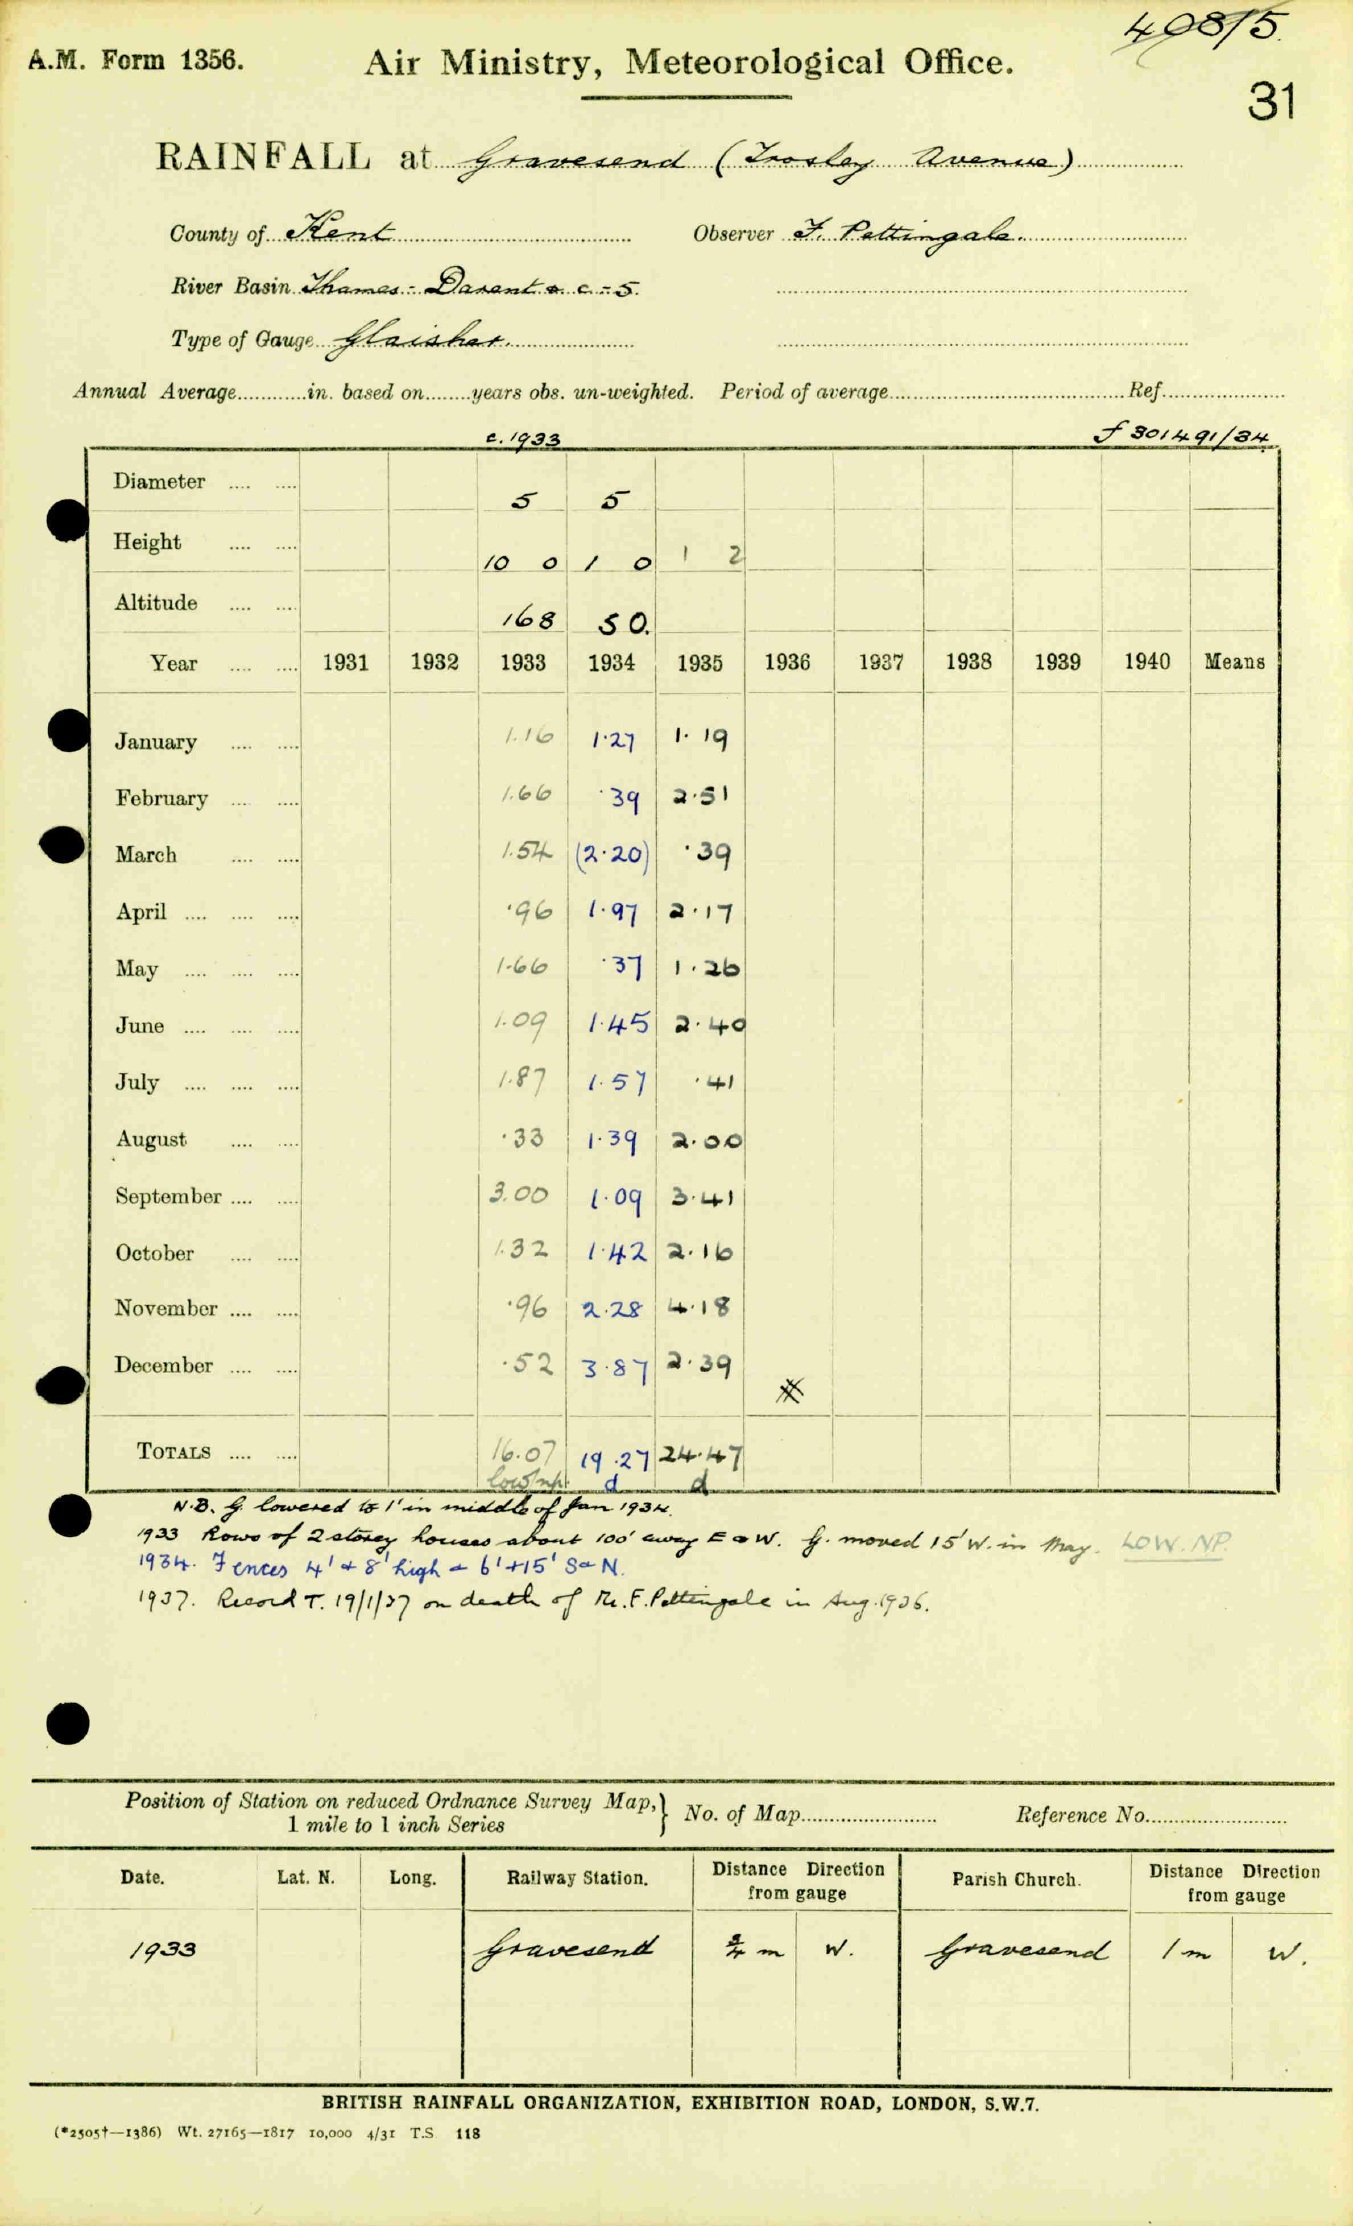 408/5.
A.M. Form 1356. Air Ministry, Meteorological Office.
31
RAINFALL at Gravesend (Trosley Avenue)
County of Kent Observer F. Pettingale.
River Basin Thames - Darent & c - 5.
Type of Gauge Glaisher.
Annual Average............in. based on........years obs. un-weighted. Period of average........................................Ref.....................
c. 1933 f 301491/34
Diameter .... .... 5 5
Height .... .... 10 0 1 0 1 2
Altitude .... .... 168 50.
Year .... .... 1931 1932 1933 1934 1935 1936 1937 1938 1939 1940 Means
January .... .... 1.16 1.27 1.19
February .... .... 1.66 .39 2.51
March .... .... 1.54 (2.20) .39
April .... .... .... .96 1.97 2.17
May .... .... .... 1.66 .37 1.26
June .... .... .... 1.09 1.45 2.40
July .... .... .... 1.87 1.57 .41
August .... .... .33 1.39 2.00
September .... .... 3.00 1.09 3.41
October .... .... 1.32 1.42 2.16
November .... .... .96 2.28 4.18
December .... .... .52 3.87 2.39
TOTALS .... .... 16.07 19.27 24.47
low/np. d d
N.B. G lowered to 1' in middle of Jan 1934.
1933 Rows of 2 storey houses about 100' away E & W. G. moved 15' W. in May. LOW. NP.
1934. Fences 4' & 8' high & 6' + 15' S & N.
1937. Record T. 19/1/37 on death of Mr. F. Pettingale in Aug. 1936.
Position of Station on reduced Ordnance Survey Map,} No. of Map........................ Reference No.........................
1 mile to 1 inch Series
Date. Lat. N. Long. Railway Station. Distance Direction from gauge Parish Church. Distance Direction from gauge
1933 Gravesend ¾ m W. Gravesend 1 m W.
BRITISH RAINFALL ORGANIZATION, EXHIBITION ROAD, LONDON, S.W.7.
(*2505†—1386) Wt. 27165—1817 10,000 4/31 T.S 118